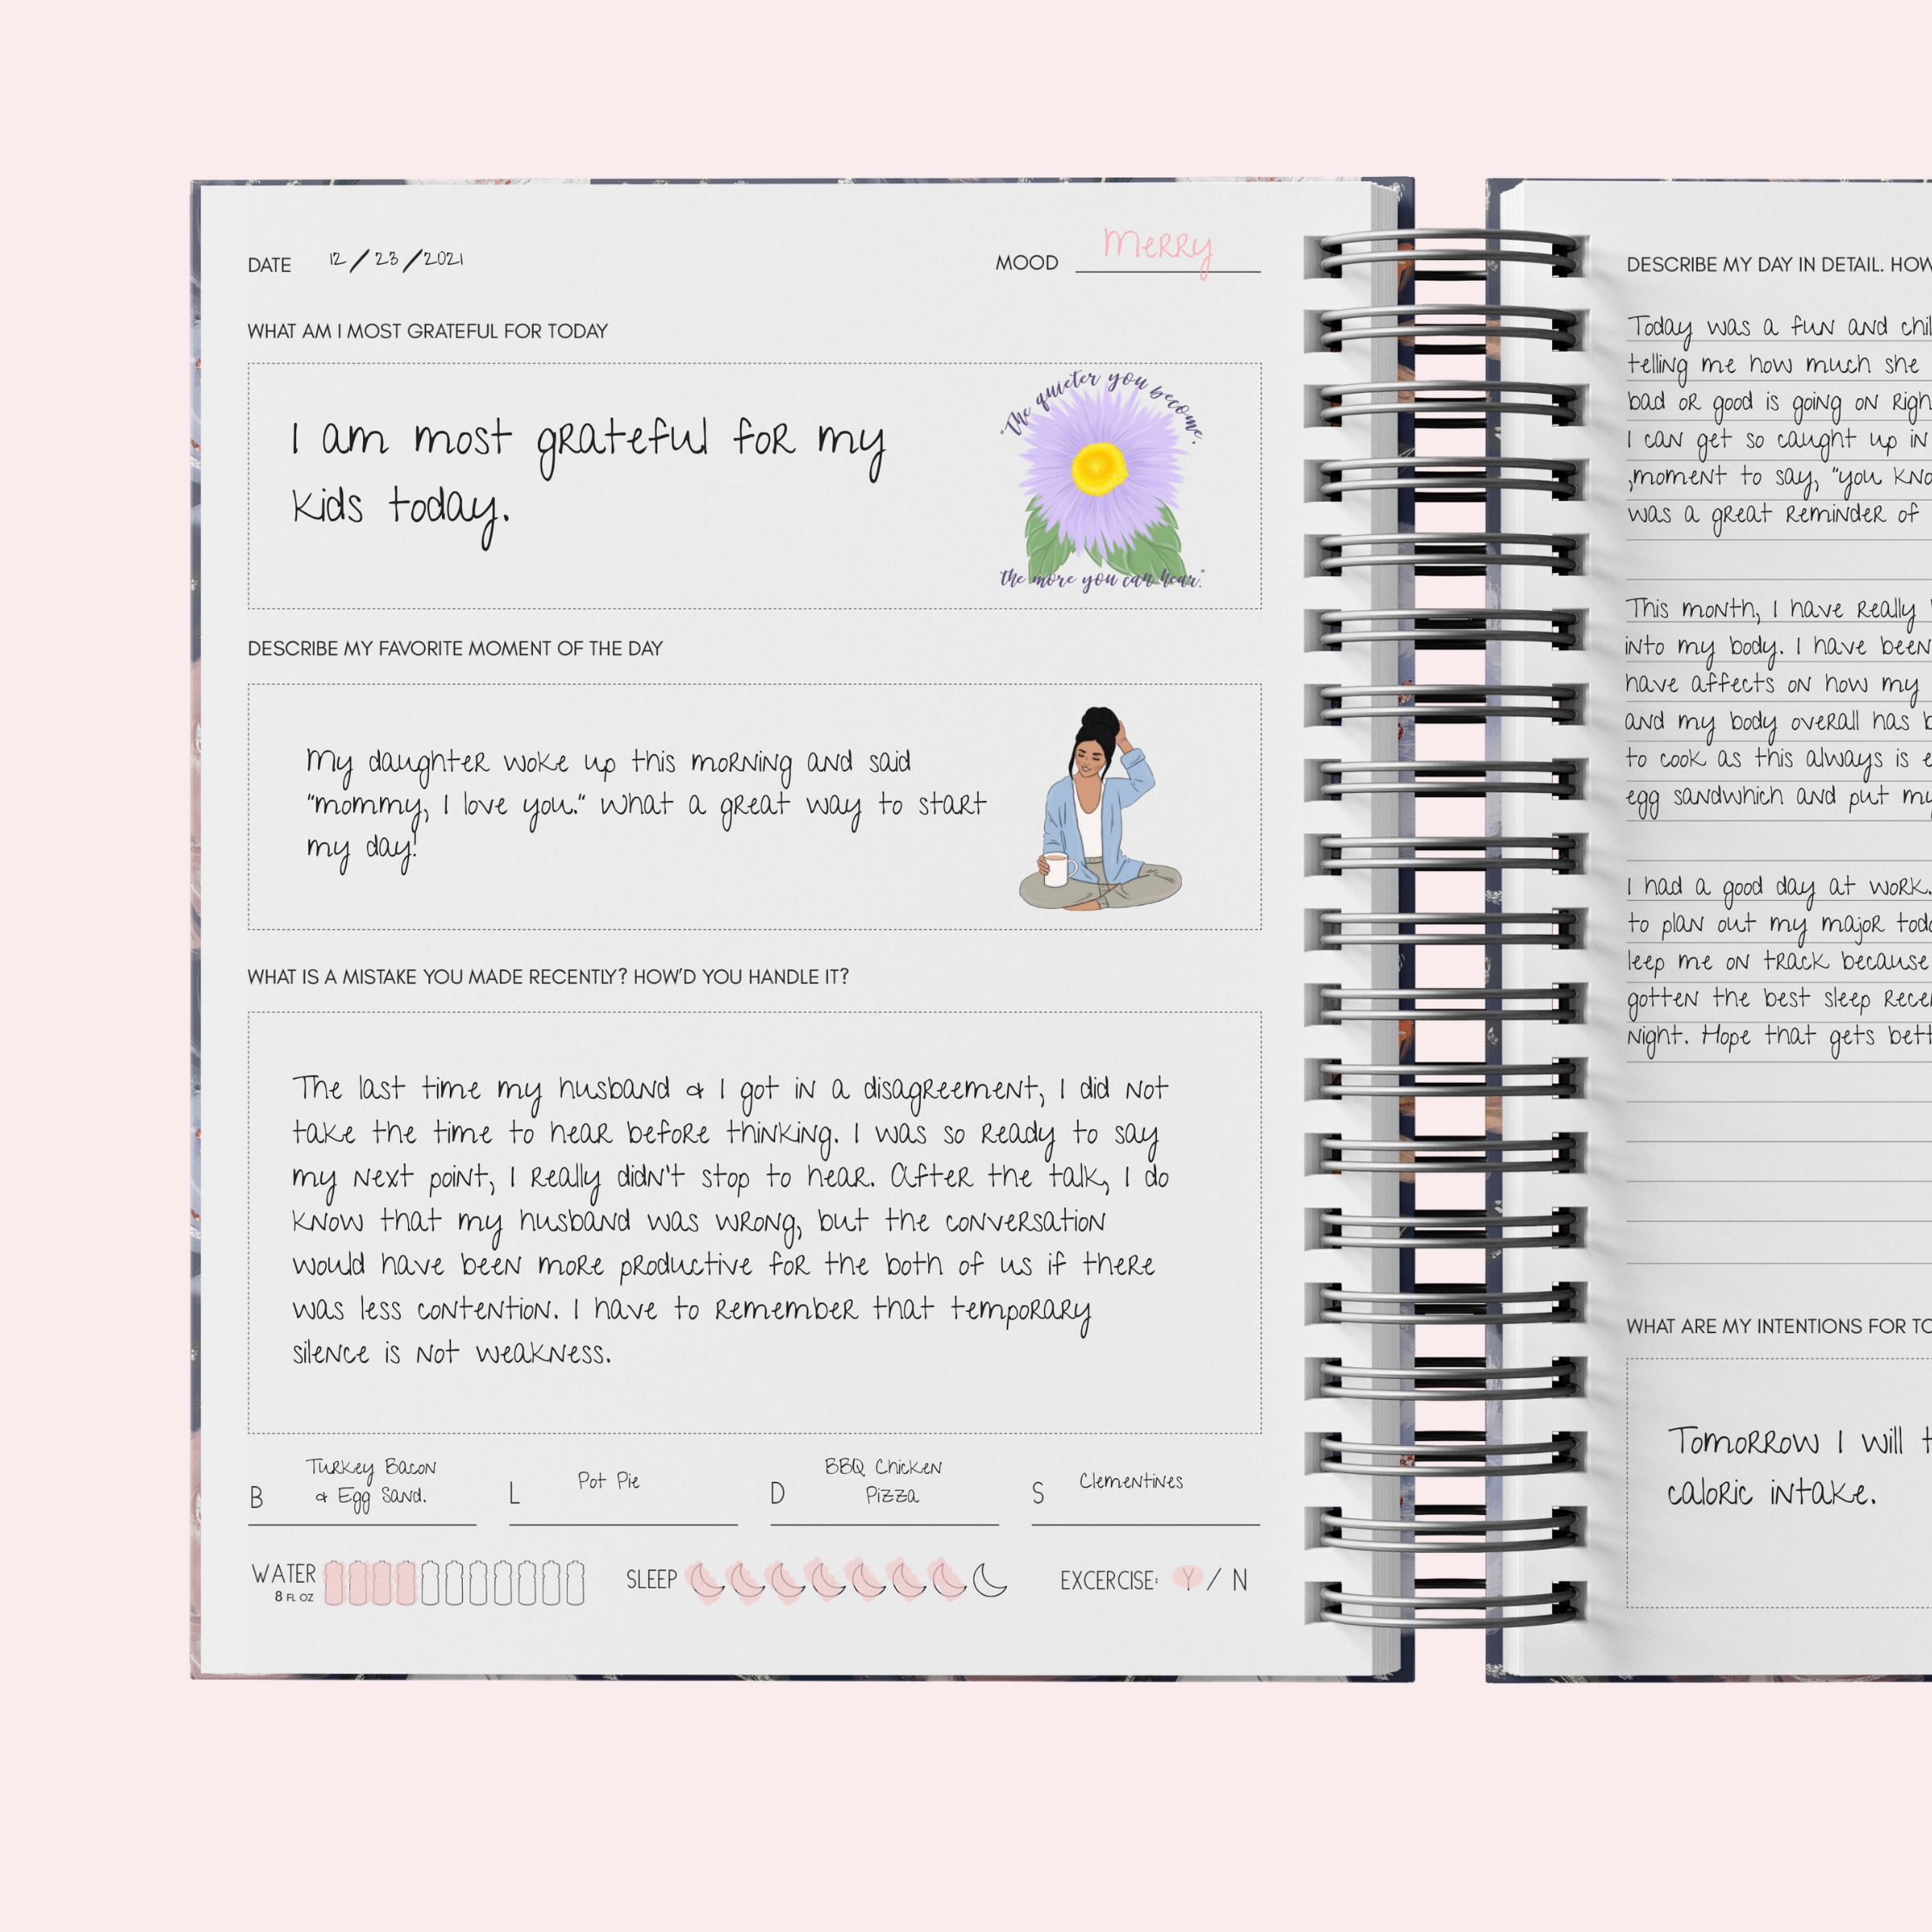 DATE 12/23/2021
MOOD Merry
WHAT AM I MOST GRATEFUL FOR TODAY
I am most grateful for my
kids today.
"The quieter you become,
the more you can hear."
DESCRIBE MY FAVORITE MOMENT OF THE DAY
My daughter woke up this morning and said
"mommy, I love you." What a great way to start
my day!
WHAT IS A MISTAKE YOU MADE RECENTLY? HOW'D YOU HANDLE IT?
The last time my husband & I got in a disagreement, I did not
take the time to hear before thinking. I was so ready to say
my next point, I really didn't stop to hear. After the talk, I do
know that my husband was wrong, but the conversation
would have been more productive for the both of us if there
was less contention. I have to remember that temporary
silence is not weakness.
B Turkey Bacon
& Egg Sand.
L Pot Pie
D BBQ Chicken
Pizza
S Clementines
WATER
8 FL OZ
SLEEP
EXCERCISE: Y / N
DESCRIBE MY DAY IN DETAIL. HOW
Today was a fun and chil
telling me how much she
bad or good is going on righ
I can get so caught up in
,moment to say, "you kno
was a great reminder of
This month, I have really
into my body. I have been
have affects on how my
and my body overall has b
to cook as this always is e
egg sandwhich and put my
I had a good day at work.
to plan out my major toda
leep me on track because
gotten the best sleep recen
night. Hope that gets bett
WHAT ARE MY INTENTIONS FOR TO
Tomorrow I will t
caloric intake.